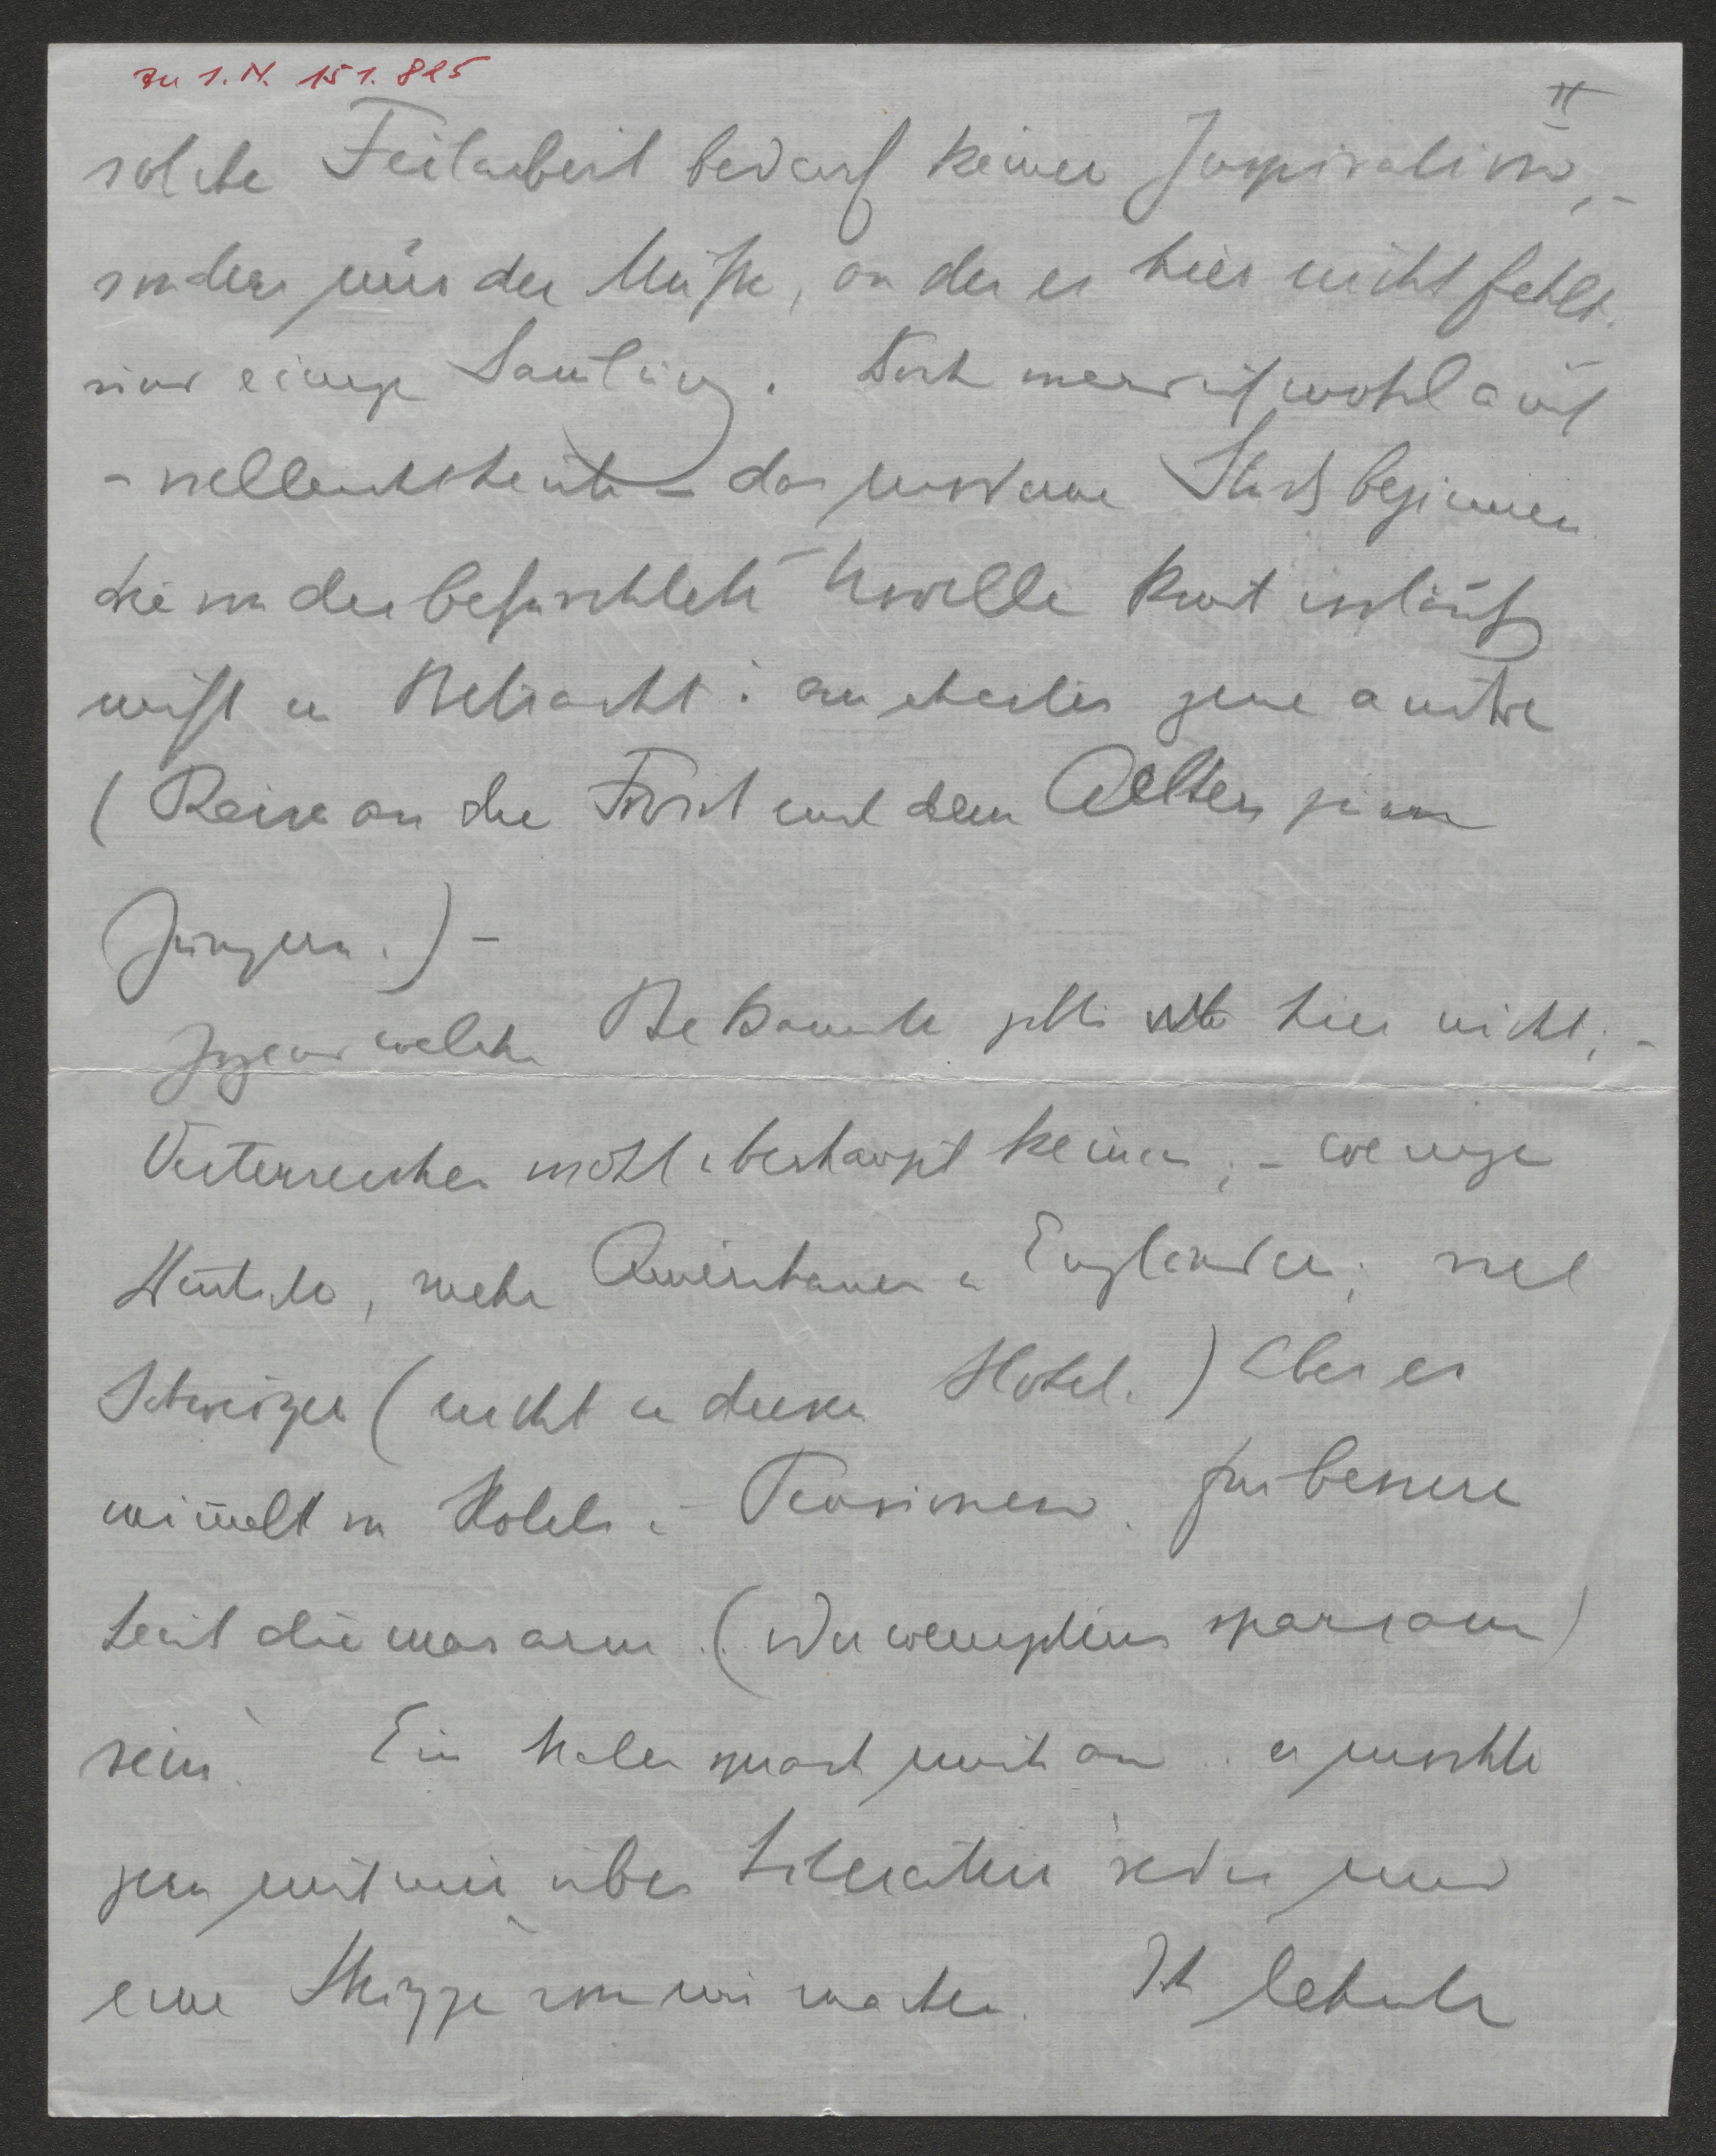 zu I. N. 151.825
II
solche Feilarbeit bedarf keiner Inspiration, –
sondern nur der Muße, an der es hier nicht fehlt.
und einige Samlung. Doch werd ich wohl auch
– vielleicht heute – das neue Stück beginnen
die von dir befürchtete Novelle komt vorläufig
nicht in Betracht: au etwa jene andre
(Reise an die Front mit dem Aeltern zum
Jüngern.) –
Irgendwelche Bekannte gibts hier nicht; –
Oesterreicher wohl überhaupt keine; – wenige
Deutsche, mehr Amerikaner u Engländer; viel
Schweizer (nicht in diesem Hotel.) Aber es
wimelt von Hotels u Pensionen. für bessere
Leut die was arm (oder wenigstens sparsam)
sein. Ein Maler sprach mich an .. er möchte
gern mit mir über Literatur reden und
eine Skizze von mir machen. Ich lehnte